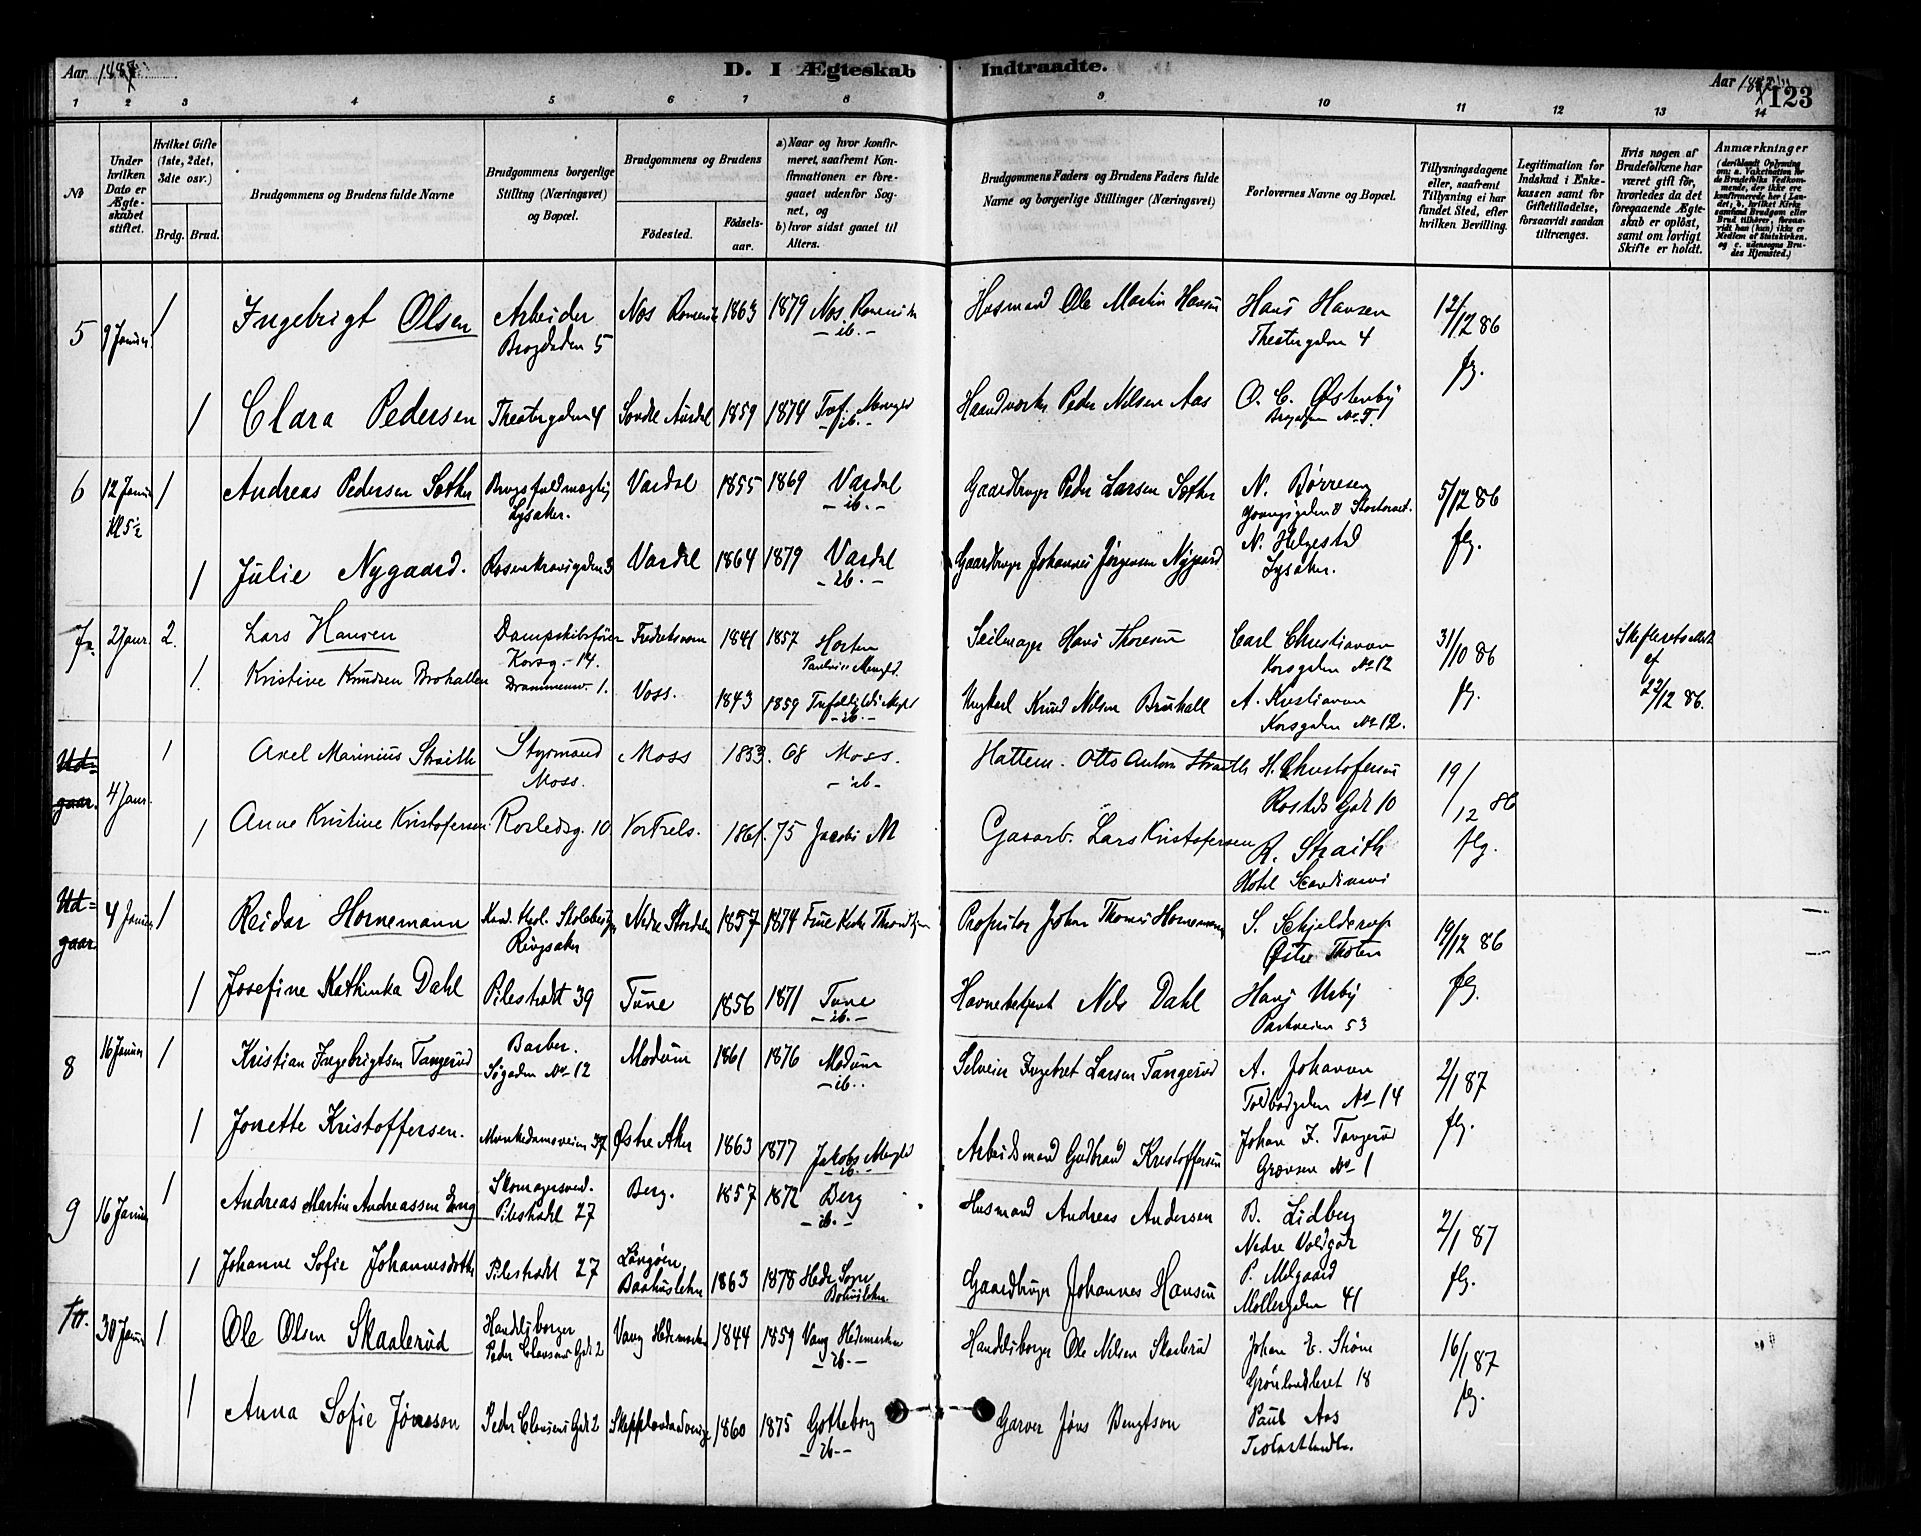 Aar 1887
D. I Ægteskab Indtraadte.
Aar 1887
123
1 2 3 4 5 6 7 8 9 10 11 12 13 14
No
Under hvilken Dato er Ægteskabet stiftet.
Hvilket Gifte (1ste, 2det, 3die osv.)
Brdg. Brud.
Brudgommens og Brudens fulde Navne
Brudgommens borgerlige Stilling (Næringsvei) og Bopæl.
Brudgommens og Brudens
Födested.
Födselsaar.
a) Naar og hvor konfirmeret, saafremt Konfirmationen er foregaaet udenfor Sognet, og
b) hvor sidst gaaet til Alters.
Brudgommens Faders og Brudens Faders fulde Navne og borgerlige Stillinger (Næringsvei)
Forlovernes Navne og Bopæl.
Tillysningsdagene eller, saafremt Tillysning ei har fundet Sted, efter hvilken Bevilling.
Legitimation for Indskud i Enkekassen samt for Giftetilladelse, forsaavidt saadan tiltrænges.
Hvis nogen af Brudefolkene har været gift för, hvorledes da det foregaaende Ægteskab er oplöst, samt om lovligt Skifte er holdt.
Anmærkninger
5 9 Januar 1 Ingebrigt Olsen Arbeider Nes Romerik 1863 1879 Nes Romerik Husmand Ole Martin Hansen Hans Hansen 12/12 86
Brogaden 5 - ib. - Theatergaden 4
flg.
1 Clara Pedersen Theatergaden 4 Søndre Aurdal 1859 1874 Tref. Mengh Haandværker Peder Nilsen Aas O. C. Østenby
- ib. -
6 12 Januar 1 Andreas Pedersen Sæther Brugsfuldmægtig Vardal 1855 1869 Vardal Gaardbruger Peder Larsen Sæther N. Børresen 5/12 86
Kl 5½ Lysaker. - ib. - Stortorvet.
1 Julie Nygaard. Rosenkransgaden 3 Vardal 1864 1879 Vardal Gaardbruger Johannes Jørgensen Nygaard N. Helgestad flg.
- ib. - Lysaker.
7 2 Janr. 2. Lars Hansen Dampskibsfører Fredriksværn 1841 1857 Horten Seilmager Hans Thoresen Carl Christiansen 31/10 86 Skifteretsattest
Korsg. - 14. Korsgaden No 12 af
1. Kristine Knudsen Brohallen Drammensv. 1. Voss. 1843 1859 Knud Nilsen Bruhall A. Kristiansen flg. 22/12 86.
- ib. - Korsgaden No 12.
Udgaar 4 Janr. 1 Axel Marinius Straith Styrmand Moss 1853. 68 Moss. Hattem. Otto Anton Straith H. Christofersen 19/12 86
Moss. - ib - Rosteds Gd 10
1 Anne Kristine Kristofersen Rostedsg. 10 Vor Frels. 1861. 75 Jacobs M Gasarb. Lars Kristofersen R. Straith flg.
Hotel Scandinavi
Udgaar 4 Januar 1 Reidar Hornemann Kand. theol. Skolebestyr Nedre Stordalen 1857 1874 Frue Kirke Throndhjem Proprietær Johan Thomas Hornemann S. Schjelderup 19/12 86
Ringsaker Østre Thoten
1 Josefine Kathinka Dahl Pilestrædet 39 Tune 1856 1871 Tune Havnebetjent Nils Dahl Hans Useby flg.
- ib. - Parkveien 53
8 16 Januar 1 Kristian Ingebrigtsen Tangerud Barber. Modum 1861 1876 Modum Selveier Ingebret Larsen Tangerud A. Johansen 2/1 87
Søgaden No 12 - ib. - Toldbodgaden No 14
1 Jonette Kristoffersen. Munkedamsveien 37 Østre Aker 1863 1877 Jakobs Mengh Arbeidsmand Gudbrand Kristoffersen Johan I. Tangerud flg.
- ib. - Grænsen No 1
9 16 Januar 1 Andreas Martin Andreassen Eng Skomagersvend. Berg. 1857 1872 Berg Husmand Andreas Andersen B. Lidberg 2/1 87
Pilestrædet 27 - ib. - Nedre Voldgade
1 Johanne Sofie Johannesdatter Pilestrædet 27 Baahuslehn 1863 1878 Gaardbruger Johannes Hansen P. Melgaard flg.
Møllergaden 41
10. 30 Januar 1 Ole Olsen Skaalerud Handelsborger Vang Hedemarken 1844 1859 Vang Hedemarken Handelsborger Ole Nilsen Skaalerud Johan E. Strøm 16/1 87
Peder Clausens Gd 2 - ib. - Grønlandsleret 18
1 Anna Sofie Jönsson Peder Clausens Gd 2 Skepplanda Sverige 1860 1875 Gøtteborg Garver Jöns Bengtson Paul Aas flg.
- ib. -